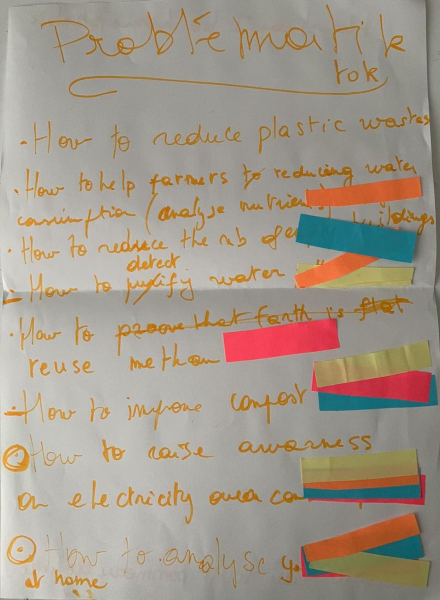 Problématik
tok
· How to reduce plastic wastes
· How to help farmers to reducing water
consumption (analyse nutrien
· How to reduce the nb of buildings
detect
- How to justify water
· How to prove that Earth is flat
reuse methan
- How to improve compost
How to raise awarness
on electricity over con
How to analyse y
at home